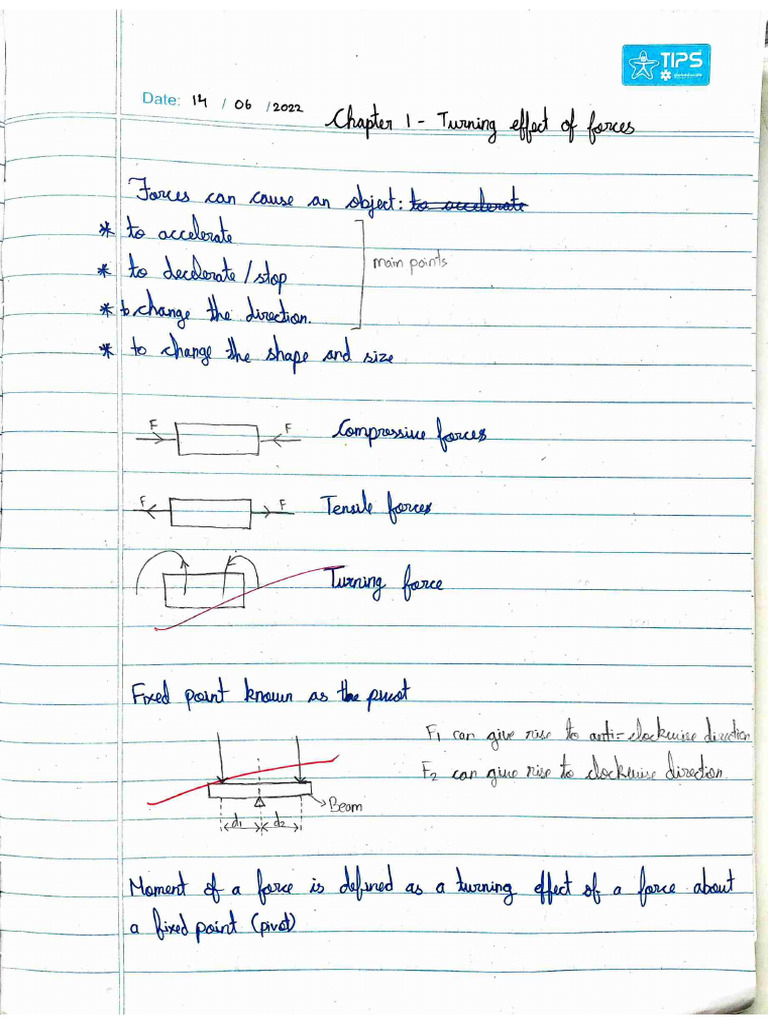 TIPS
Date: 14 / 06 / 2022
Chapter 1 - Turning effect of forces
Forces can cause an object: to accelerate
* to accelerate
* to decelerate / stop
main points
* to change the direction.
* to change the shape and size
F F Compressive forces
F F Tensile forces
Turning force
Fixed point known as the pivot
F1 can give rise to anti-clockwise direction
F2 can give rise to clockwise direction
Beam
d1 d2
Moment of a force is defined as a turning effect of a force about
a fixed point (pivot)